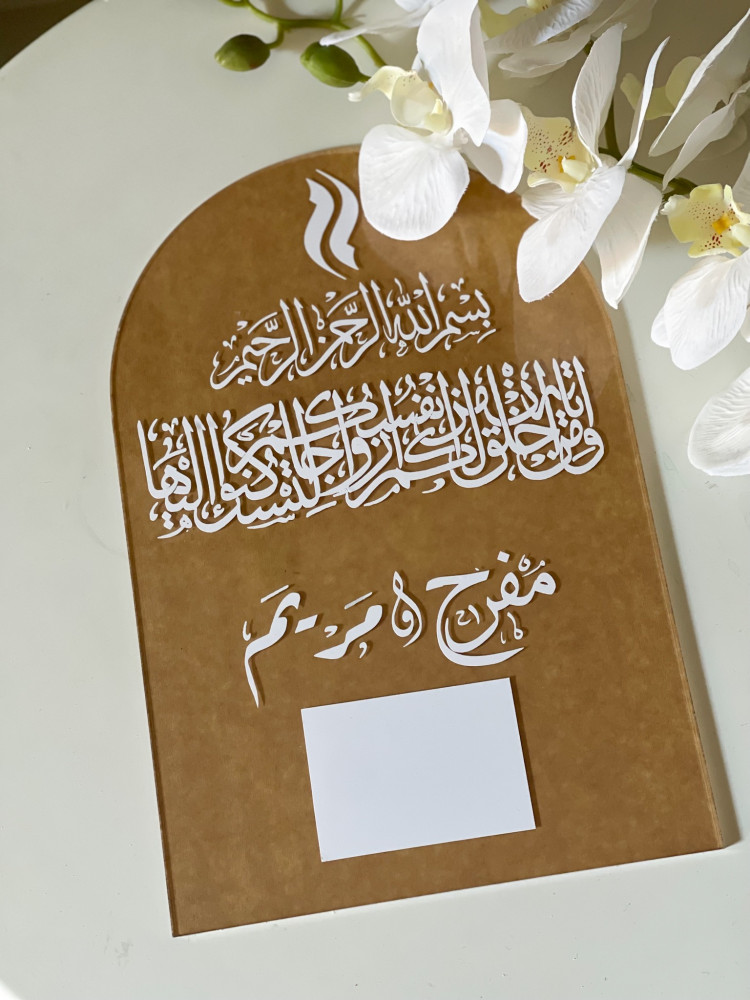 بِسْمِ اللهِ الرَّحْمٰنِ الرَّحِيمِ
وَمِنْ آيَاتِهِ أَنْ خَلَقَ لَكُمْ مِنْ أَنْفُسِكُمْ أَزْوَاجًا لِتَسْكُنُوا إِلَيْهَا
مُفرح و مَريَم